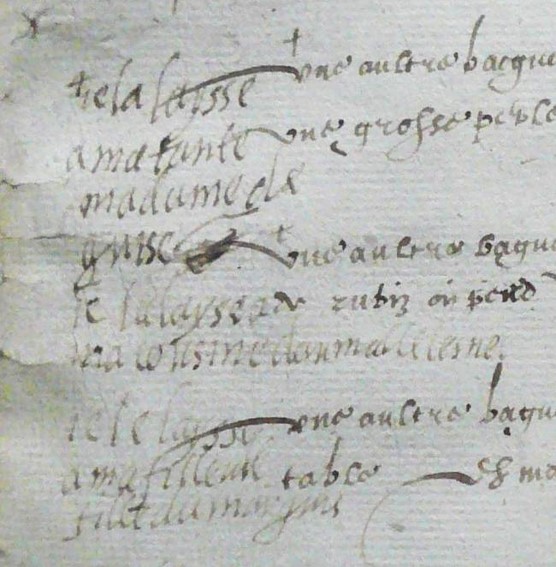 ie la laysse une aultre bague
a ma tante une grosse perle
madame de
guise une aultre bague
ie la laysse a de rubiz ou pend
ma cousine daumalle
ie le laysse une aultre bague
a ma filleule table
fille du